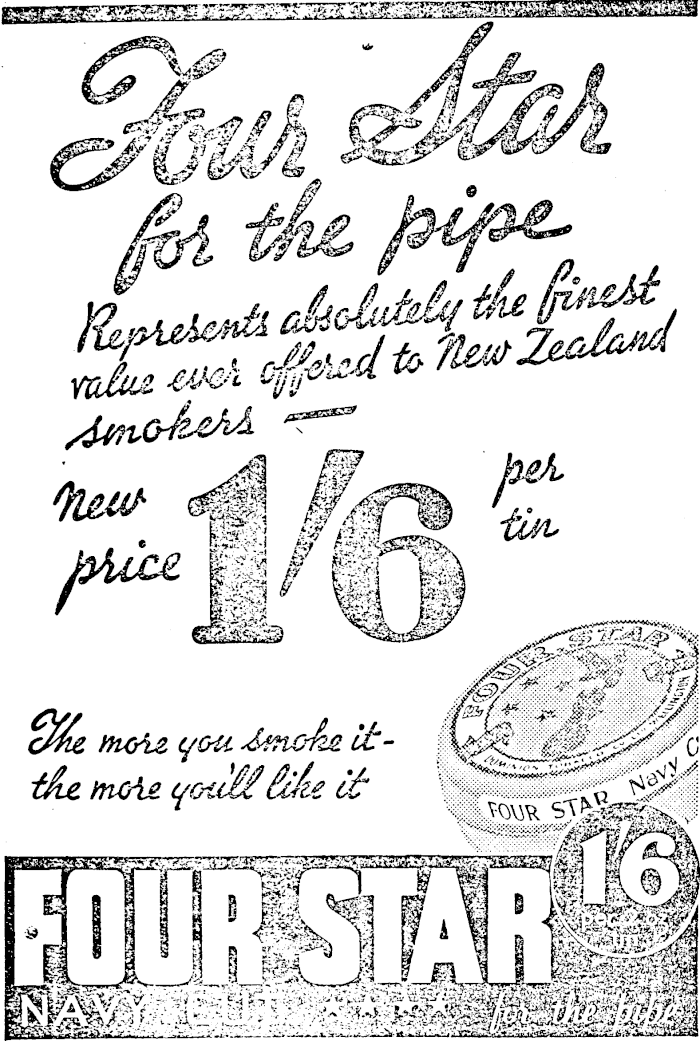 Four Star
for the pipe
Represents absolutely the finest
value ever offered to New Zealand
smokers —
New
price
1/6
per
tin
The more you smoke it-
the more you'll like it
FOUR STAR
FOUR STAR Navy C
1/6
FOUR STAR
NAVY CUT ★★★★ for the pipe